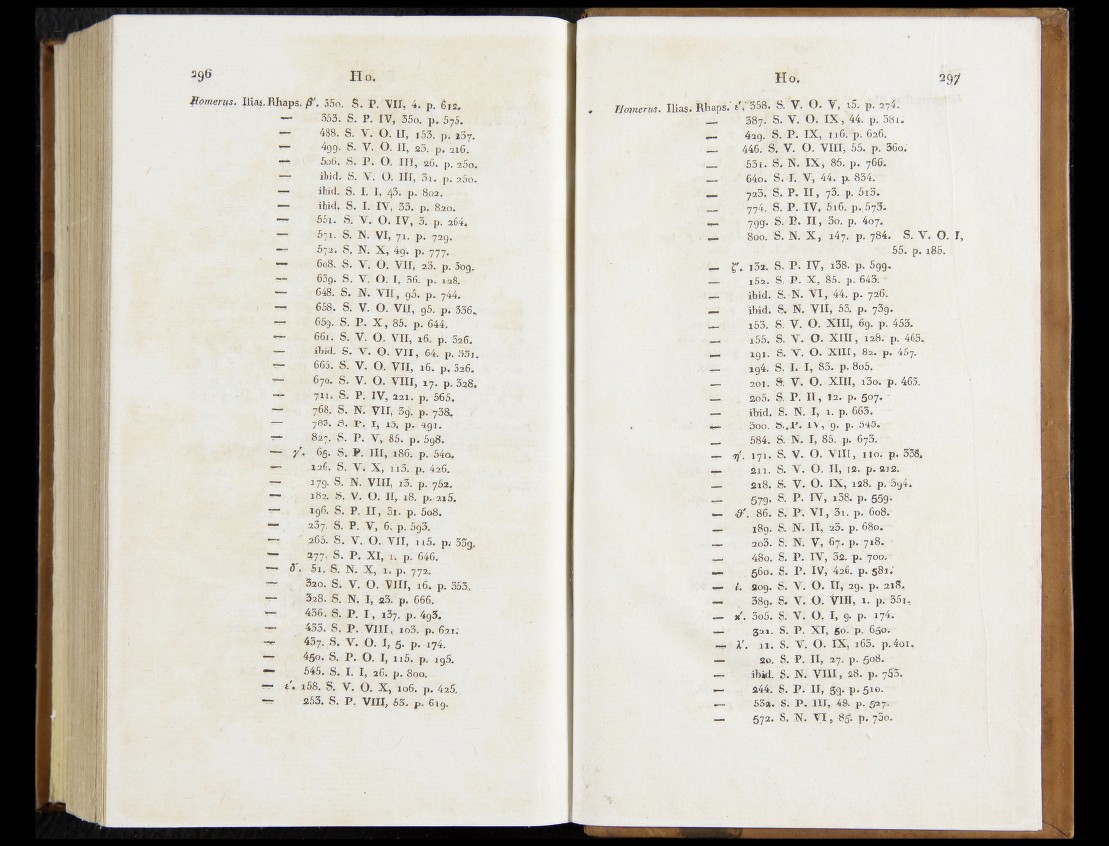 296 Ho.
Homerus. Ilias. Rhaps. β'. 350. S. P. VII, 4. p. 612.
— 353. S. P. IV, 350. p. 575.
— 488. S. V. O. II, 153. p. 237.
— 499. S. V. O. II, 23. p. 216.
— 506. S. P. O. III, 26. p. 250.
— ibid. S. V. O. III, 31. p. 250.
— ibid. S. I. I, 43. p. 802.
— ibid. S. I. IV, 33. p. 820.
— 551. S. V. O. IV, 3. p. 264.
— 571. S. N. VI, 71. p. 729.
— 572. S. N. X, 49. p. 777.
— 608. S. V. O. VII, 23. p. 309.
— 639. S. V. O. I, 36. p. 128.
— 648. S. N. VII, 95. p. 744.
— 658. S. V. O. VII, 95. p. 336.
— 659. S. P. X, 85. p. 644.
— 661. S. V. O. VII, 16. p. 326.
— ibid. S. V. O. VII, 64. p. 331.
— 665. S. V. O. VII, 16. p. 326.
— 670. S. V. O. VIII, 17. p. 328.
— 711. S. P. IV, 221. p. 565.
— 768. S. N. VII, 39. p. 738.
— 783. S. P. I, 13. p. 491.
— 827. S. P. V, 85. p. 598.
— γ'. 65. S. P. III, 186. p. 540.
— 126. S. V. X, 113. p. 426.
— 179. S. N. VIII, 13. p. 752.
— 182. S. V. O. II, 18. p. 215.
— 196. S. P. II, 31. p. 508.
— 237. S. P. V, 6. p. 593.
— 265. S. V. O. VII, 115. p. 339.
— 277. S. P. XI, 1. p. 646.
— δ'. 51. S. N. X, 1. p. 772.
— 320. S. V. O. VIII, 16. p. 353.
— 328. S. N. I, 23. p. 666.
— 436. S. P. I, 137. p. 493.
— 433. S. P. VIII, 103. p. 621.
— 437. S. V. O. I, 5. p. 174.
— 450. S. P. O. I, 115. p. 195.
— 545. S. I. I, 26. p. 800.
— ε'. 158. S. V. O. X, 106. p. 425.
— 253. S. P. VIII, 53. p. 619.
Ho. 297
Homerus. Ilias. Rhaps. ε'. 358. S. V. O. V, 15. p. 274.
— 387. S. V. O. IX, 44. p. 381.
— 429. S. P. IX, 116. p. 626.
— 446. S. V. O. VIII, 55. p. 360.
— 531. S. N. IX, 86. p. 766.
— 640. S. I. V, 44. p. 834.
— 723. S. P. II, 73. p. 513.
— 774. S. P. IV, 516. p. 573.
— 799. S. P. II, 30. p. 407.
— 800. S. N. X, 147. p. 784. S. V. O. I,
55. p. 185.
— ζ'. 132. S. P. IV, 138. p. 599.
— 152. S. P. X, 85. p. 643.
— ibid. S. N. VI, 44. p. 726.
— ibid. S. N. VII, 53. p. 739.
— 153. S. V. O. XIII, 69. p. 453.
— 155. S. V. O. XIII, 128. p. 463.
— 191. S. V. O. XIII, 82. p. 457.
— 194. S. I. I, 83. p. 805.
— 201. S. V. O. XIII, 130. p. 463.
— 205. S. P. II, 12. p. 507.
— ibid. S. N. I, 1. p. 663.
— 300. S. P. IV, 9. p. 545.
— 584. S. N. I, 85. p. 673.
— η'. 171. S. V. O. VIII, 110. p. 338.
— 211. S. V. O. II, 12. p. 212.
— 218. S. V. O. IX, 128. p. 394.
— 579. S. P. IV, 138. p. 559.
— θ'. 86. S. P. VI, 31. p. 608.
— 189. S. N. II, 23. p. 680.
— 203. S. N. V, 67. p. 718.
— 480. S. P. IV, 32. p. 700.
— 560. S. P. IV, 426. p. 581.
— ι. 209. S. V. O. II, 29. p. 218.
— 389. S. V. O. VIII, 1. p. 351.
— κ'. 305. S. V. O. I, 9. p. 174.
— 321. S. P. XI, 50. p. 650.
— λ'. 11. S. V. O. IX, 163. p. 401.
— 20. S. P. II, 27. p. 508.
— ibid. S. N. VIII, 28. p. 753.
— 244. S. P. II, 39. p. 510.
— 532. S. P. III, 48. p. 527.
— 572. S. N. VI, 85. p. 730.